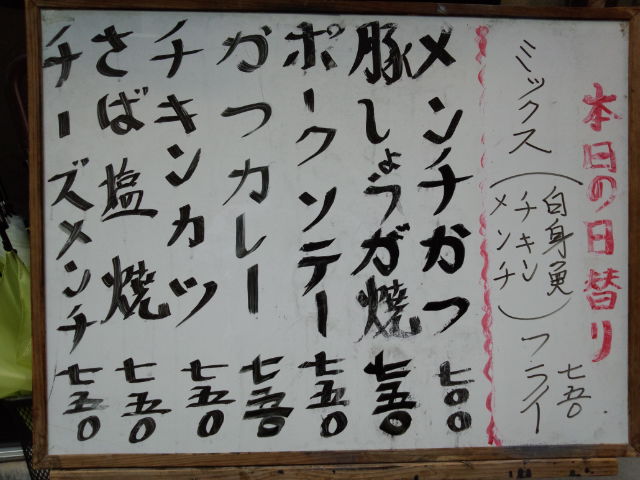 本日の日替り
ミックス(白身魚
チキン
メンチ)フライ
七五〇
メンチかつ 七〇〇
豚しょうが焼 七五〇
ポークソテー 七五〇
かつカレー 七五〇
チキンカツ 七五〇
さば塩焼 七五〇
チーズメンチ 七五〇